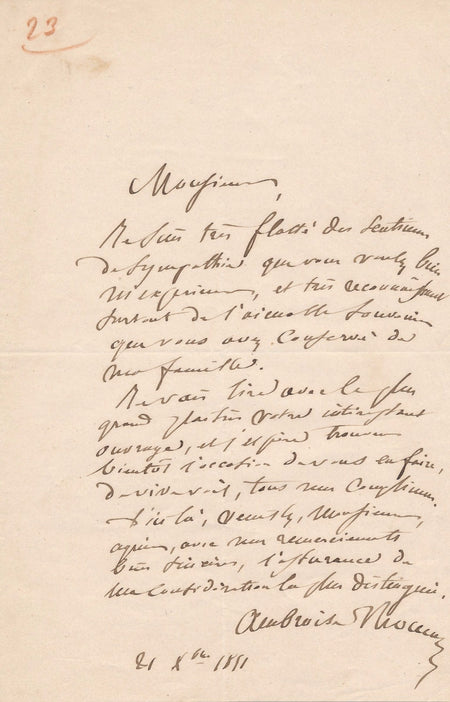 23
Monsieur,
Je suis très flatté des sentimens
de sympathie que vous voulez bien
m'exprimer, et très reconnaissant
surtout de l'aimable souvenir
que vous avez conservé de
ma famille.
Je vais lire avec le plus
grand plaisir votre intéressant
ouvrage, et j'espère trouver
bientôt l'occasion de vous en faire,
de vive voix, tous mes complimens.
D'ici là, veuillez, Monsieur,
agréer, avec mes remerciements
bien sincères, l'assurance de
ma considération la plus distinguée.
Ambroise Thomas
21 Xbre 1851